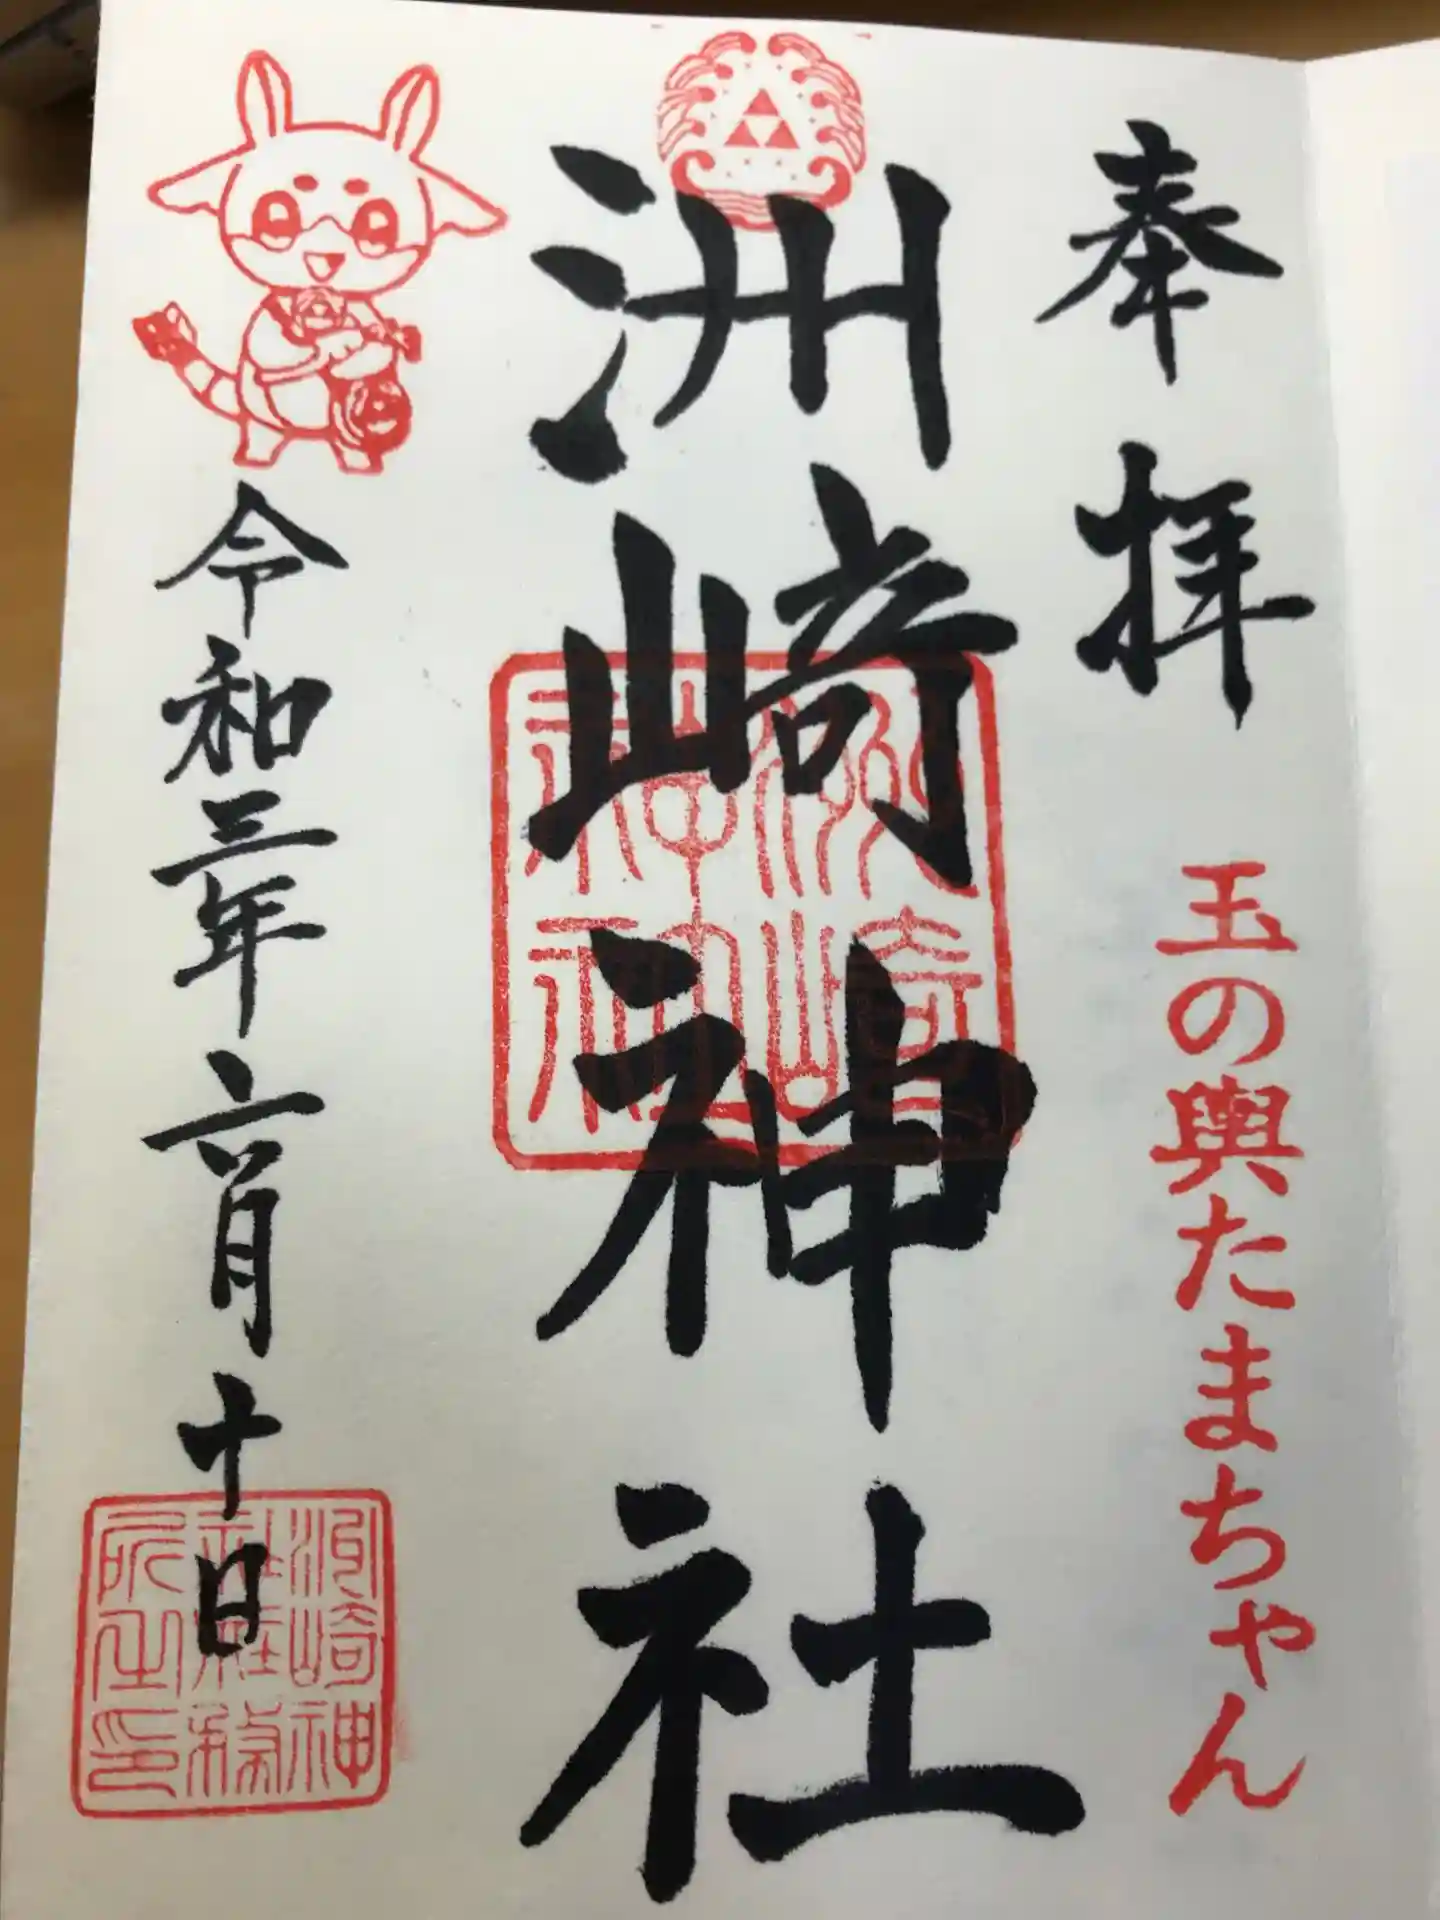 奉拝
玉の輿たまちゃん
洲崎神社
洲崎
神社
令和三年六月十日
洲崎神
社社務
所之印